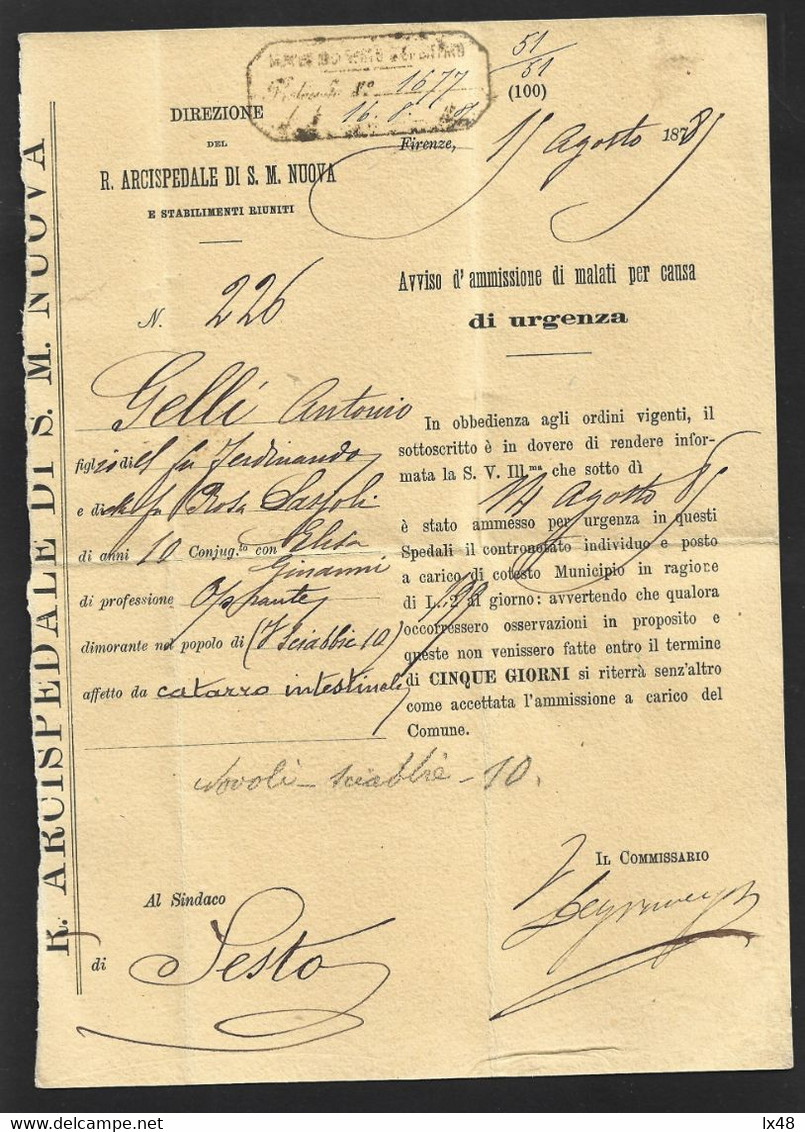 R. ARCISPEDALE DI S. M. NUOVA
Protocollo N.º 1677
16. 8.
51/51
(100)
DIREZIONE
DEL
R. ARCISPEDALE DI S. M. NUOVA
E STABILIMENTI RIUNITI
N. 226
Gelli Antonio
figlio del fu Ferdinando
e della fu Rosa
di anni 10 Conjug.to con Elisa
Ginanni
di professione
dimorante nel popolo di (V Sciabbie 10)
affetto da catarro intestinale
Firenze, 15 Agosto 1885
Avviso d'ammissione di malati per causa
di urgenza
In obbedienza agli ordini vigenti, il
sottoscritto è in dovere di rendere infor-
mata la S. V. Ill.ma che sotto dì
14 Agosto 85
è stato ammesso per urgenza in questi
Spedali il contronotato individuo e posto
a carico di cotesto Municipio in ragione
di L. 2 al giorno: avvertendo che qualora
occorressero osservazioni in proposito e
queste non venissero fatte entro il termine
di CINQUE GIORNI si riterrà senz'altro
come accettata l'ammissione a carico del
Comune.
Novoli - Sciabbie - 10.
IL COMMISSARIO
Al Sindaco
di Sesto
lx48